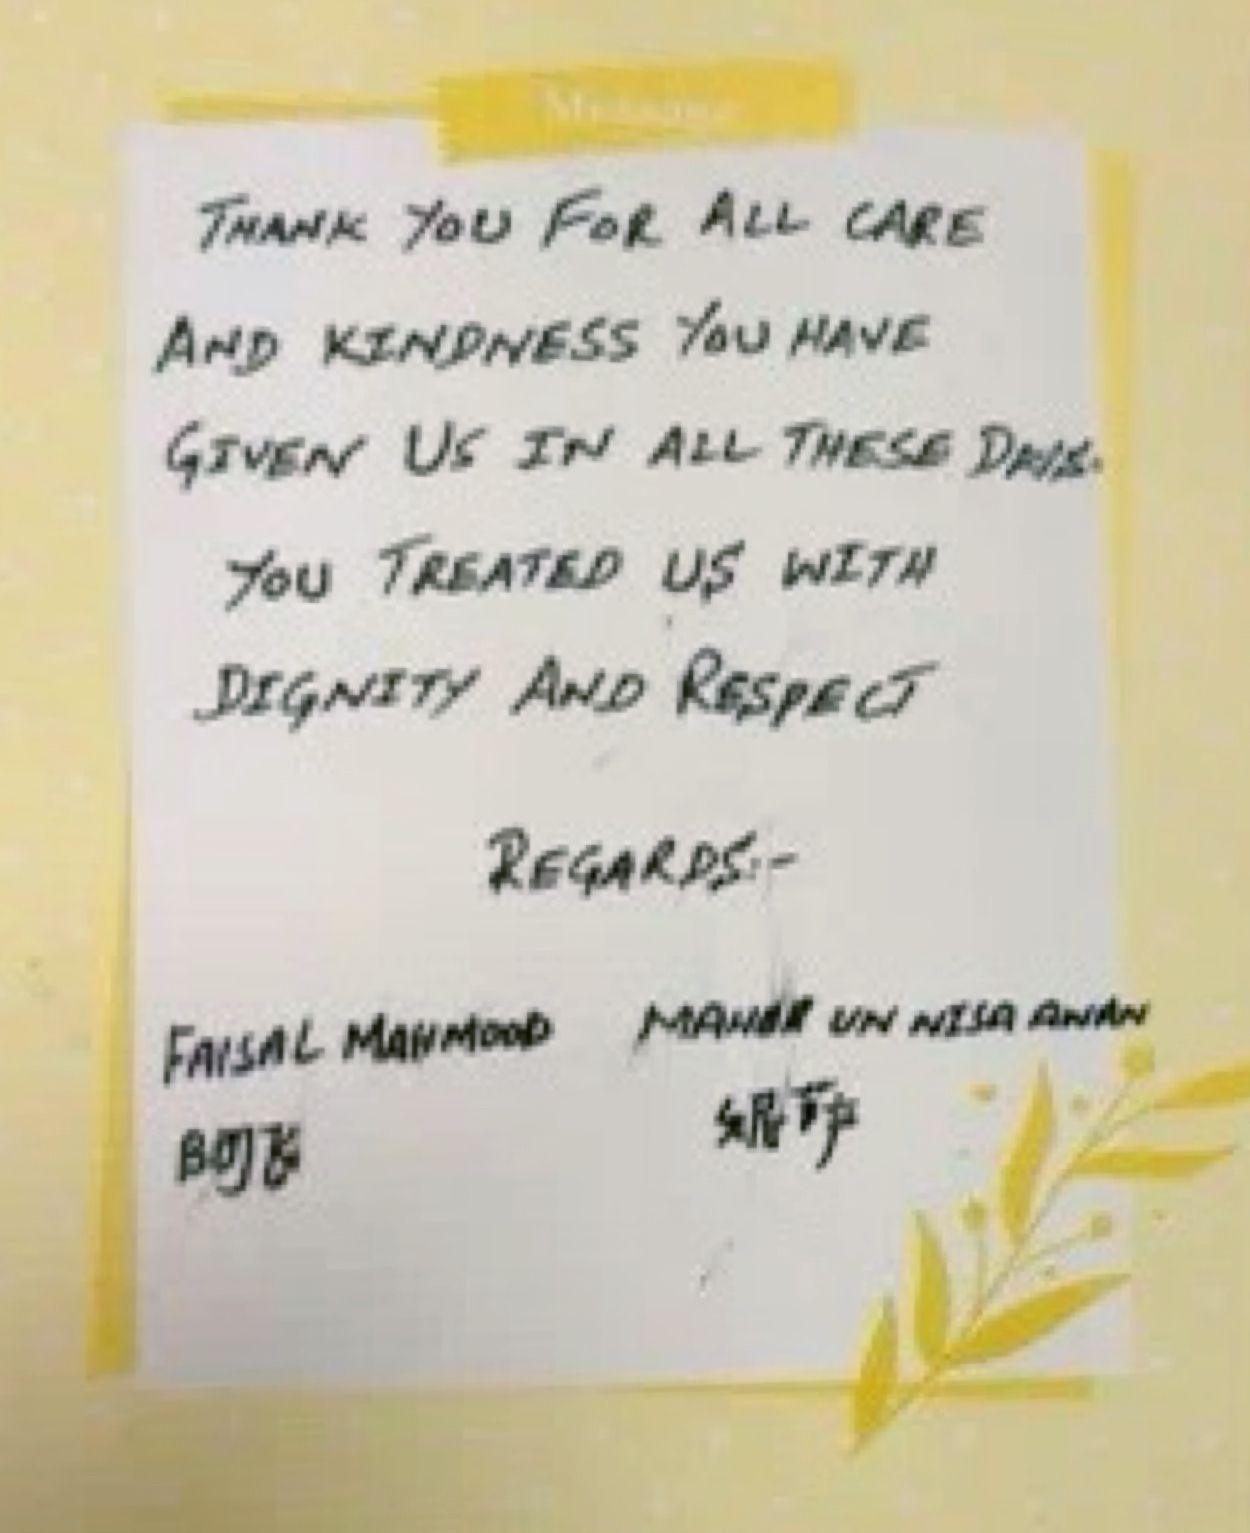 Message
THANK YOU FOR ALL CARE
AND KINDNESS YOU HAVE
GIVEN US IN ALL THESE DAYS.
YOU TREATED US WITH
DIGNITY AND RESPECT
REGARDS:-
FAISAL MAHMOOD MAHER UN NISA AWAN